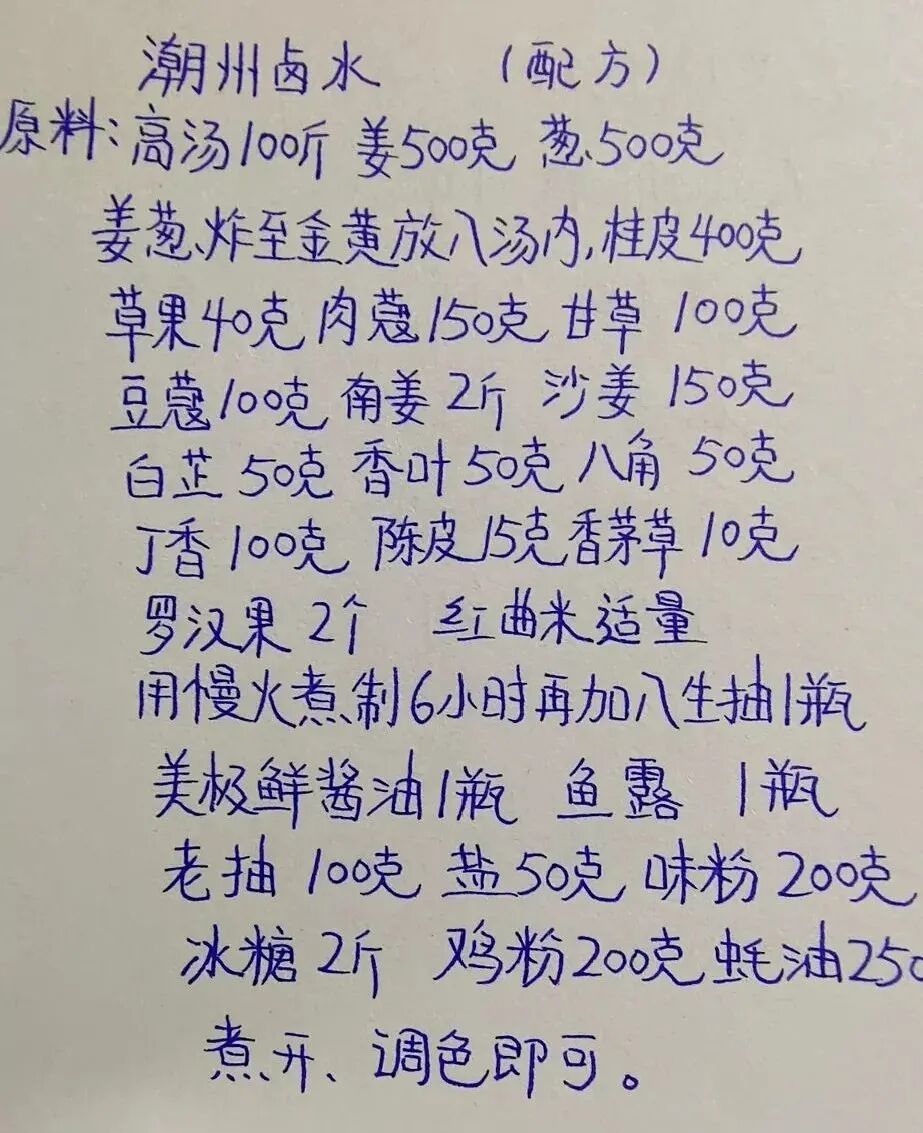 潮州卤水 (配方)
原料:高汤100斤 姜500克 葱500克
姜葱、炸至金黄放入汤内,桂皮400克
草果40克 肉蔻150克 甘草 100克
豆蔻100克 南姜 2斤 沙姜 150克
白芷 50克 香叶 50克 八角 50克
丁香 100克 陈皮15克 香茅草 10克
罗汉果 2个 红曲米适量
用慢火煮制6小时再加入生抽1瓶
美极鲜酱油1瓶 鱼露 1瓶
老抽 100克 盐50克 味粉 200克
冰糖 2斤 鸡粉200克 蚝油250
煮开、调色即可。